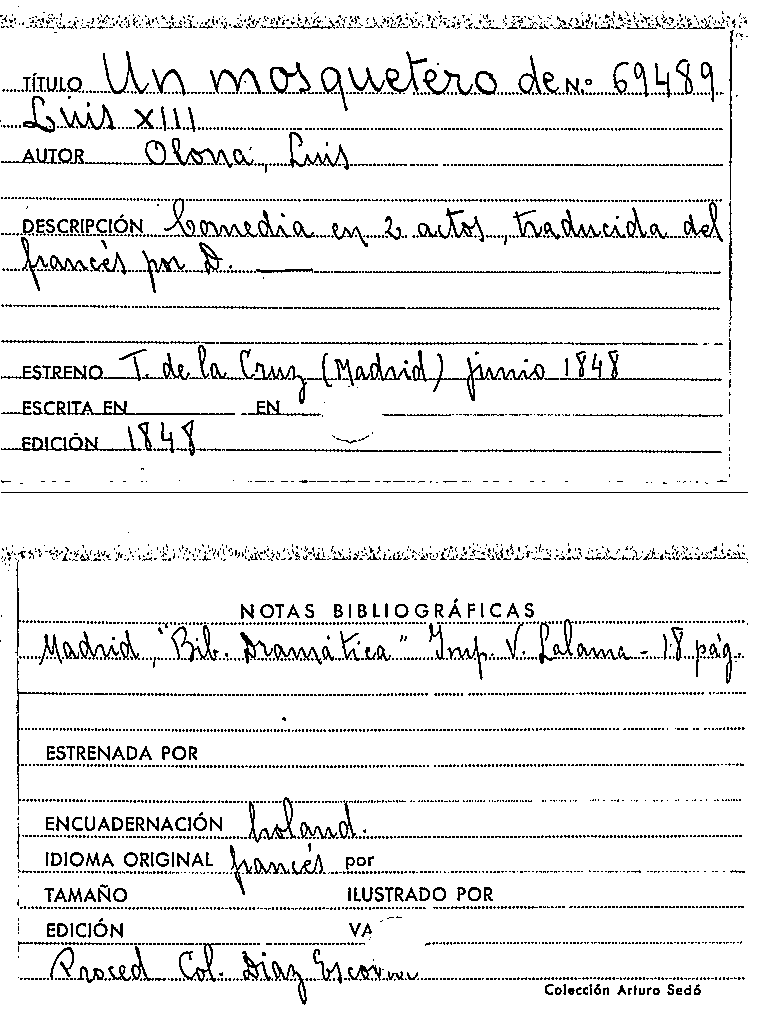 TÍTULO Un mosquetero de N.º 69489
Luis XIII
AUTOR Olona, Luis
DESCRIPCIÓN Comedia en 2 actos, traducida del
francés por D. ——
ESTRENO T. de la Cruz (Madrid) junio 1848
ESCRITA EN EN
EDICIÓN 1848
NOTAS BIBLIOGRÁFICAS
Madrid, "Bib. Dramática" Imp. V. Lalama - 18 pág.
ESTRENADA POR
ENCUADERNACIÓN holand.
IDIOMA ORIGINAL francés por
TAMAÑO ILUSTRADO POR
EDICIÓN VA
Proced Col. Díaz
Colección Arturo Sedó